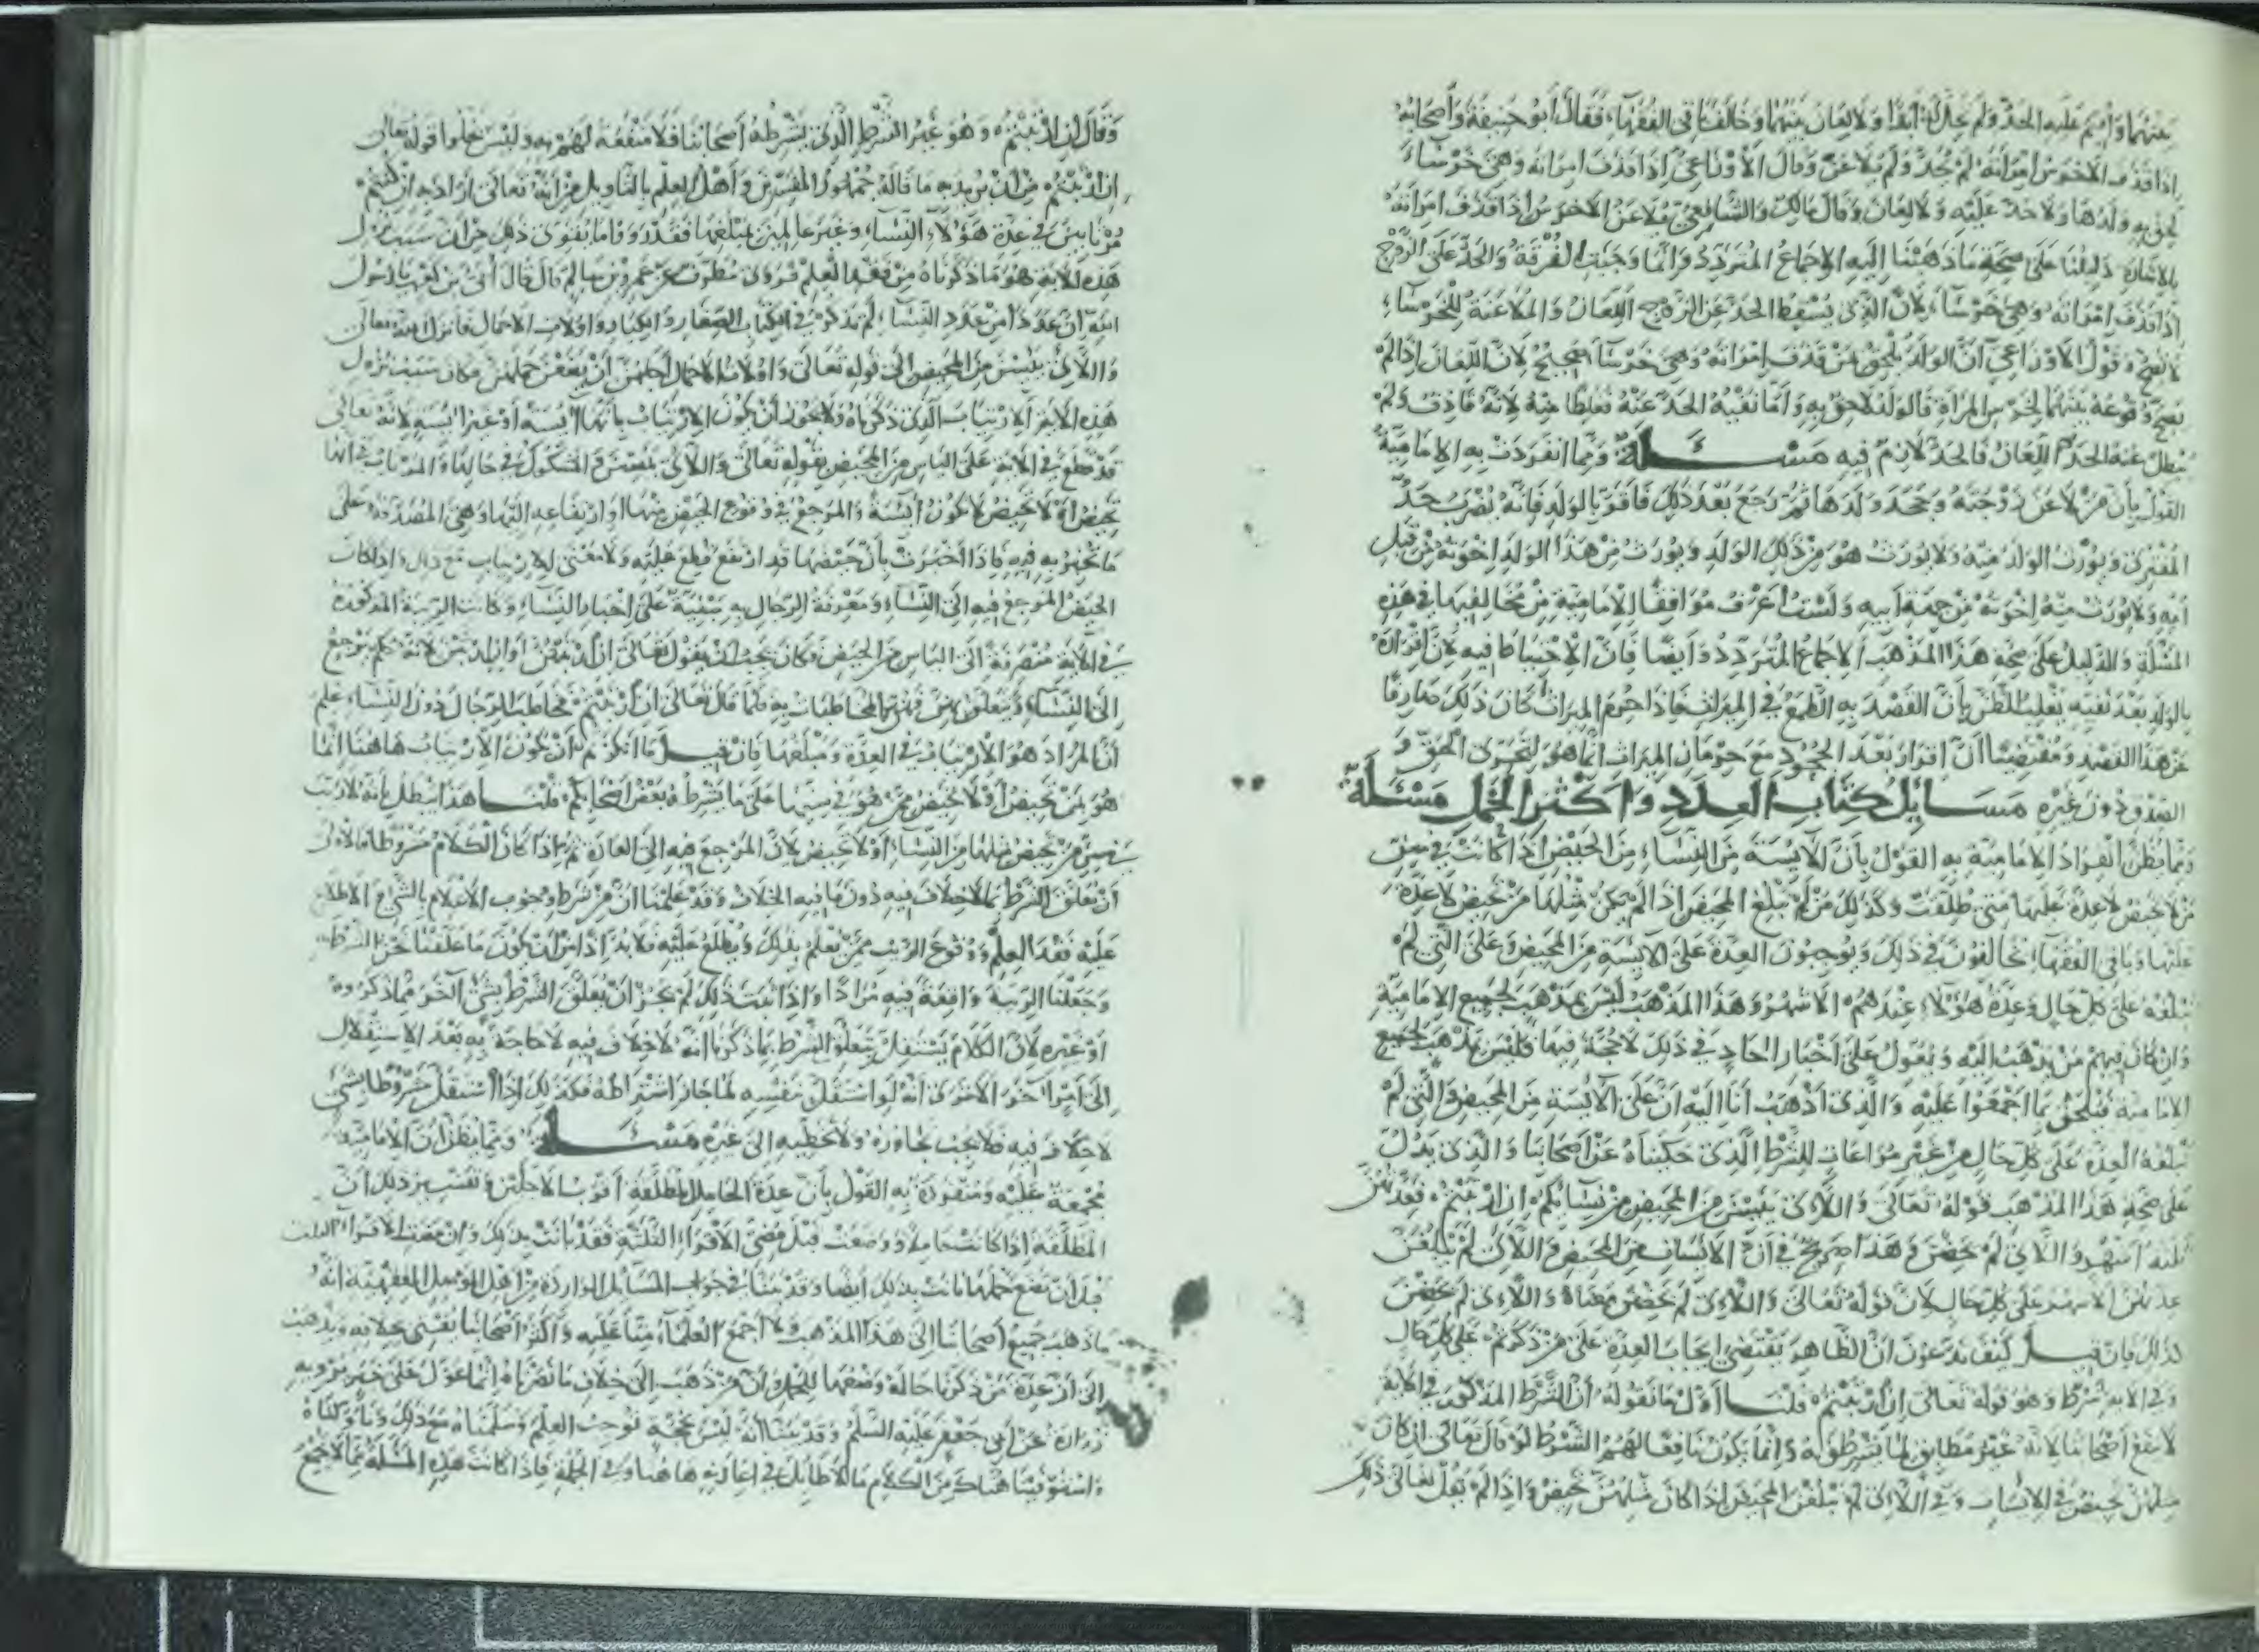 بينهما وأقيم عليه الحد ولم تحل له أبدا ولا لعان بينهما وخالف باقي الفقهاء فقال أبو حنيفة وأصحابه
إذا قذف الأخرس امرأته لم يحد ولم يلاعن وقال الأوزاعي إذا قذف امرأته وهي خرساء
لحق به ولدها ولا حد عليه ولا لعان وقال مالك والشافعي يلاعن الأخرس إذا قذف امرأته
بالإشارة دليلنا على صحة ما ذهبنا إليه الإجماع المتردد وإنما وجبت الفرقة والحد على الزوج
إذا قذف امرأته وهي خرساء لأن الذي يسقط الحد عن الزوج اللعان والملاعنة للخرساء
لا تصح وقول الأوزاعي أن الولد يلحق بمن قذف امرأته وهي خرساء صحيح لأن اللعان إذا لم
يصح وقوعه بينهما لخرس المرأة فالولد لاحق به وأما نفيه الحد عنه فغلط منه لأنه قاذف ولم
يبطل عنه الحد اللعان فالحد لازم فيه مسئلة ومما انفردت به الإمامية
القول بأن من لاعن زوجته وجحد ولدها ثم رجع بعد ذلك فأقر بالولد فإنه يضرب حد
المفتري ويورث الولد منه ولا يورث هو من ذلك الولد ويورث من هذا الولد إخوته من قبل
أمه ولا يورث منه إخوته من جهة أبيه ولست أعرف موافقا للإمامية من مخالفيها في هذه
المسئلة والدليل على صحة هذا المذهب الإجماع المتردد وأيضا فإن الاحتياط فيه لأن إقراره
بالولد بعد نفيه يغلب الظن بأن القصد به الطمع في الميراث فإذا حرم الميراث كان ذلك صارفا
عن هذا القصد ومقتضيا أن إقراره بعد الجحود مع حرمان الميراث إنما هو لتحري الحق و
الصدق دون غيره مسايل كتاب العدد وأكثر الحمل مسئلة
ومما يظن انفراد الإمامية به القول بأن الآيسة من النساء من الحيض إذا كانت في سن
من لا تحيض لا عدة عليها متى طلقت وكذلك من لم تبلغ المحيض إذا لم يكن مثلها من تحيض لا عدة
عليها وباقي الفقهاء يخالفون في ذلك ويوجبون العدة على الآيسة من المحيض وعلى التي لم
تبلغه على كل حال وعدة هؤلاء عندهم الأشهر وهذا المذهب ليس بمذهب لجميع الإمامية
وإن كان فيهم من يذهب إليه ويعول على أخبار آحاد في ذلك لا حجة فيها فليس بمذهب لجميع
الإمامية فيلحق بما أجمعوا عليه والذي أذهب أنا إليه أن على الآيسة من المحيض والتي لم
تبلغه العدة على كل حال من غير مراعات للشرط الذي حكيناه عن أصحابنا والذي يدل
على صحة هذا المذهب قوله تعالى واللائي يئسن من المحيض من نسائكم إن ارتبتم فعدتهن
ثلثة أشهر واللائي لم يحضن وهذا صريح في أن الآيسات من المحيض واللائي لم يبلغن
عدتهن الأشهر على كل حال لأن قوله تعالى واللائي لم يحضن معناه واللائي لم يحضن
كذلك فإن قيل كيف تدعون أن الظاهر يقتضي إيجاب العدة على من ذكرتم على كل حال
وفي الآية شرط وهو قوله تعالى إن ارتبتم قلنا أول ما نقوله أن الشرط المذكور في الآية
لا ينفع أصحابنا لأنه غير مطابق لما يشرطونه وإنما يكون نافعا لهم الشرط لو قال تعالى إن كان
مثلهن تحيض في الآيسات وفي اللائي لم يبلغن المحيض إذا كان مثلهن تحيض وإذا لم يقل تعالى ذلك
وقال إن ارتبتم وهو غير الشرط الذي يشرطه أصحابنا فلا منفعة لهم به وليس يخلوا قوله تعالى
إن ارتبتم من أن يريد به ما قاله جمهور المفسرين وأهل العلم بالتأويل من أنه تعالى أراد به إن كنتم
مرتابين في عدة هؤلاء النساء وغير عالمين بمبلغها فقد رووا ما يقوى ذلك من أن سبب نزول
هذه الآية هو ما ذكرناه من فقد العلم فروى مطرف عن عمرو بن سالم قال قال أبي بن كعب يا رسول
الله إن عددا من عدد النساء لم تذكر في الكتاب الصغار والكبار وأولات الأحمال فأنزل الله تعالى
واللائي يئسن من المحيض إلى قوله تعالى وأولات الأحمال أجلهن أن يضعن حملهن فكان سبب نزول
هذه الآية الارتياب الذي ذكرناه ولا يجوز أن يكون الارتياب بأنها آيسة أو غير آيسة لأنه تعالى
قد قطع في الآية على اليأس من المحيض بقوله تعالى واللائي يئسن والمشكوك في حالها والمرتاب في أنها
تحيض أو لا تحيض لا تكون آيسة والمرجع في وقوع الحيض منها أو ارتفاعه إليها وهي المصدقة على
ما تخبر به فيه فإذا أخبرت بأن حيضها قد ارتفع قطع عليه ولا معنى للارتياب مع ذلك وإذا كان
الحيض المرجع فيه إلى النساء ومعرفة الرجال به مبنية على إخبار النساء وكانت الريبة المذكورة
في الآية منصرفة إلى اليأس من الحيض فكان يجب أن يقول تعالى إن ارتبتن أو إن ارتبن لأنه حكم يرجع
إلى النساء ويتعلق بهن فهن المخاطبات به فلما قال تعالى إن ارتبتم فخاطب الرجال دون النساء علم
أن المراد هو الارتياب في العدة ومبلغها فإن قيل ما أنكرتم أن يكون الارتياب هاهنا إنما
هو بمن تحيض أو لا تحيض ممن هو في سنها على ما يشرطه بعض أصحابكم قلنا هذا يبطل بأنه لا ريب
في سن من تحيض مثلها من النساء أو لا تحيض لأن المرجع فيه إلى العادة ثم إذا كان الكلام مشروطا فالأولى
أن يعلق الشرط بما لا خلاف فيه دون ما فيه الخلاف وقد علمنا أن من شرط وجوب الإعلام بالشيء والاطلاع
عليه فقد العلم ووقوع الريب ممن يعلم بذلك ويطلع عليه فلا بد إذا من أن يكون ما علقنا نحن الشرط
وجعلنا الريبة واقعة فيه مرادا وإذا ثبت ذلك لم يجز أن يعلق الشرط بشيء آخر مما ذكروه
أو غيره لأن الكلام يستقل بتعلق الشرط بما ذكرنا أنه لا خلاف فيه ولا حاجة به بعد الاستقلال
إلى أمر آخر ألا ترى أنه لو استقل بنفسه لما جاز اشتراطه فكذلك إذا استقل مشروطا بشيء
لا خلاف فيه فلا يجب تجاوزه ولا تخطيه إلى غيره مسئلة ومما يظن أن الإمامية
مجمعة عليه ومنفردة به القول بأن عدة الحامل المطلقة أقرب الأجلين وتفسير ذلك أن
المطلقة إذا كانت حاملا ووضعت قبل مضي الأقراء الثلثة فقد بانت بذلك وإن مضت الأقراء الثلث
قبل أن تضع حملها بانت بذلك أيضا وقد بينا في جواب المسائل الواردة من أهل الموصل الفقهية أنه
ما ذهب جميع أصحابنا إلى هذا المذهب ولا أجمع العلماء منا عليه وأكثر أصحابنا يفتي بخلافه ويذهب
إلى أن عدة من ذكرنا حاله وضعها للحمل وأن من ذهب إلى خلاف ما نصرناه إنما عول على خبر يرويه
زرارة عن أبي جعفر عليه السلم وقد بينا أنه ليس بحجة توجب العلم وسلمناه مع ذلك وتأولناه
واستوفينا هناك من الكلام ما لا طايل في إعادته هاهنا وفي الجملة فإذا كانت هذه المسئلة مما لا يجمع